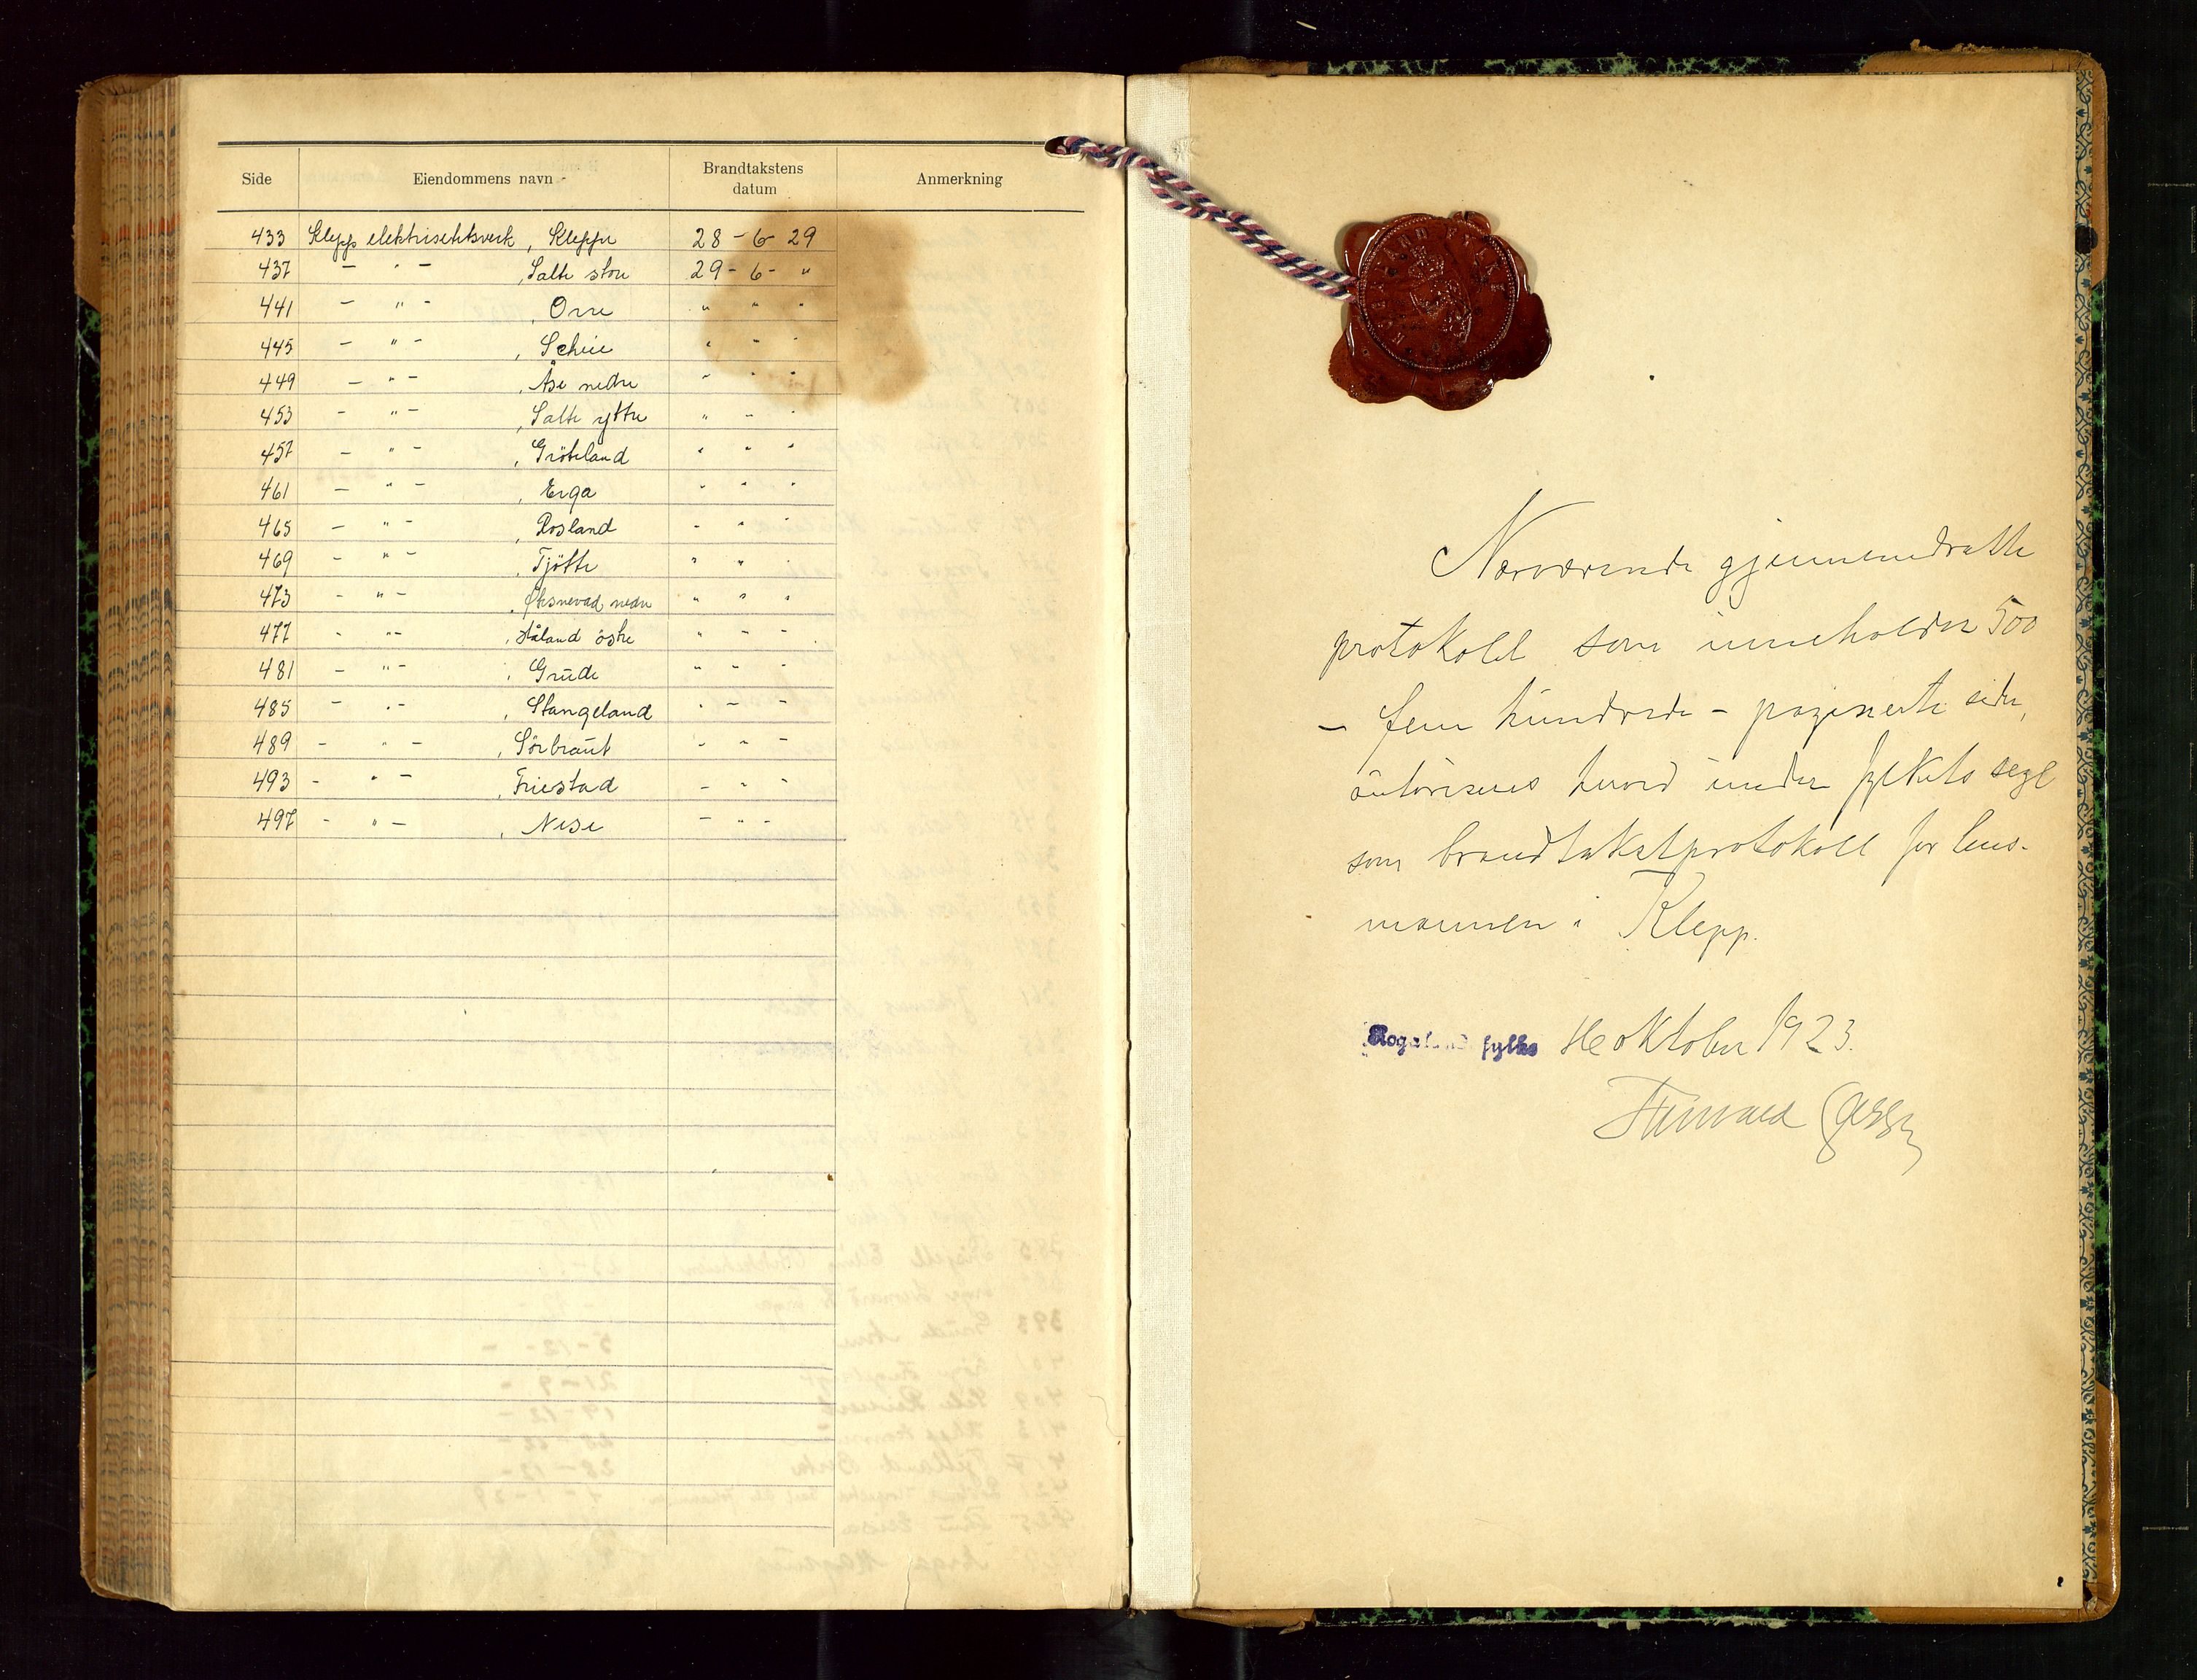 Side Eiendommens navn Brandtakstens datum Anmerkning
433 Klepp elektrisitetsverk, Kleppe 28-6-29
437 - " - , Salte store 29-6- "
441 - " - , Orre " " "
445 - " - , Scheie " " "
449 - " - , Åse nedre " " "
453 - " - , Salte yttre " " "
457 - " - , Gröteland " " "
461 - " - , Erga " " "
465 - " - , Rosland " " "
469 - " - , Tjötte " " "
473 - " - , Øksnevad nedre " " "
477 - " - , Håland östre " " "
481 - " - , Grude " " "
485 - " - , Stangeland " " "
489 - " - , Sörbraut " " "
493 - " - , Friestad " " "
497 - " - , Nese - " -
ROGALAND FYLKE
Nærværende gjennemdratte
protokoll som inneholder 500
- fem hundrede - paginerte sider,
autoriseres herved under fylkets segl
som brandtakstprotokoll for lens-
mannen i Klepp.
Rogaland fylke oktober 1923.